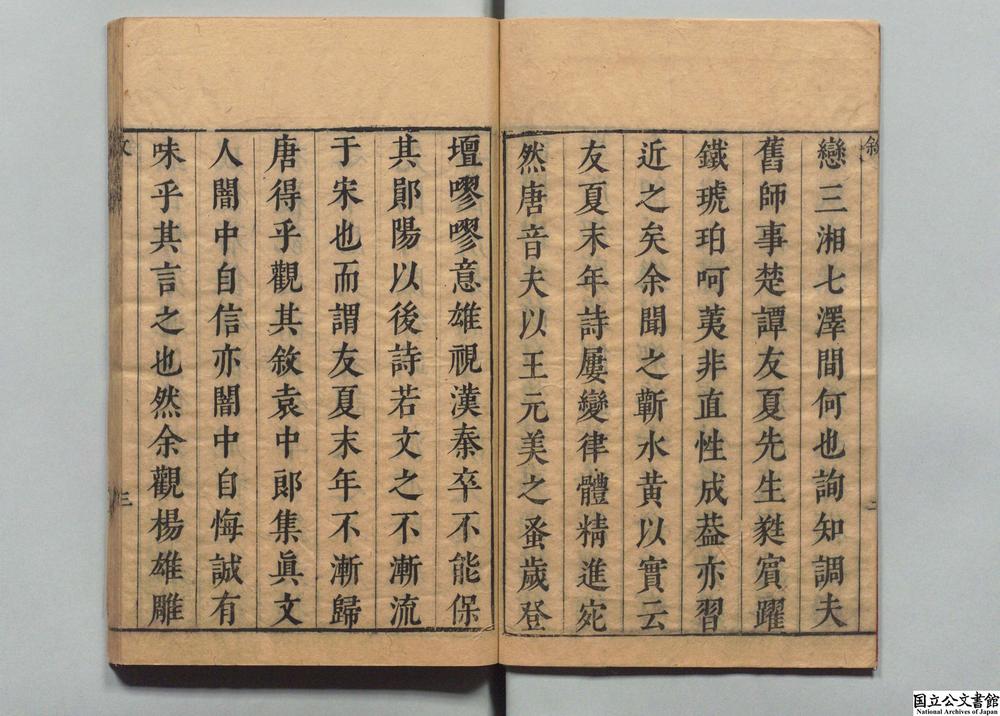 戀三湘七澤間何也詢知調夫
舊師事楚譚友夏先生蕤賓躍
鐵琥珀呵荑非直性成葢亦習
近之矣余聞之蘄水黃以實云
友夏末年詩屢變律體精進宛
然唐音夫以王元美之蚤歲登
壇嘐嘐意雄視漢秦卒不能保
其鄖陽以後詩若文之不漸流
于宋也而謂友夏末年不漸歸
唐得乎觀其敘袁中郎集眞文
人闇中自信亦闇中自悔誠有
味乎其言之也然余觀楊雄雕
三
国立公文書館
National Archives of Japan